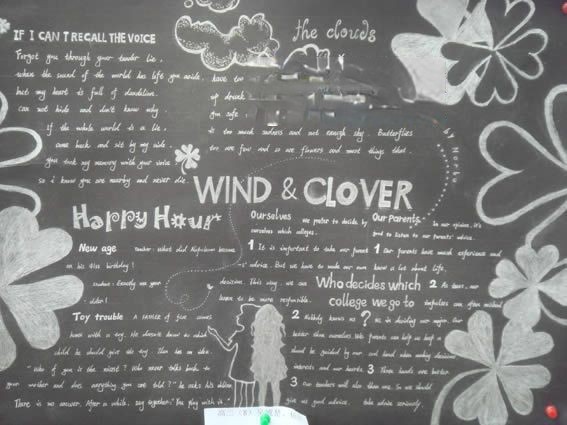 IF I CAN'T RECALL THE VOICE
Forget you through your tender lie,
when the sound of the world has left you aside,
but my heart is full of dandelion,
can not hide and don't know why.
If the whole world is a lie,
come back and sit by my side.
you took my memory with your voice
so i know you are nearby and never die.
the clouds
have too
up drunk
you safe
is too much sadness and not enough sky. Butterflies
too are few and so are flowers and most things that
by Norku
WIND & CLOVER
Happy Hour
New age Teacher: What did Napoleon become
on his 41st birthday?
Student: Exactly one year
older!
Toy trouble A father of five comes
home with a toy. He doesn't know to which
child he should give the toy. Then has an idea.
"Who of you is the nicest? Who never talks back to
your mother and does anything you are told?" he asks his children
There is no answer. After a while, say together: "You play with it."
Ourselves We prefer to decide by
ourselves which colleges.
1 It is important to take our parent
s' advice. But we have to make our own
decision. This way, we can
learn to be more responsible.
2 Nobody knows us
better than ourselves. We
should be guided by our
interests and our hearts.
3 Our teachers will also
give us good advice.
Who decides which
college we go to
?
Our Parents In our opinion, it's
good to listen to our parents' advice.
1 Our parents have much experience and
know a lot about life.
2 As teens, our
impulses can often mislead
us in deciding our major. Our
parents can help us keep a
cool head when making decisions
3 Three heads are better
than one. So we should
take advice seriously.
高二